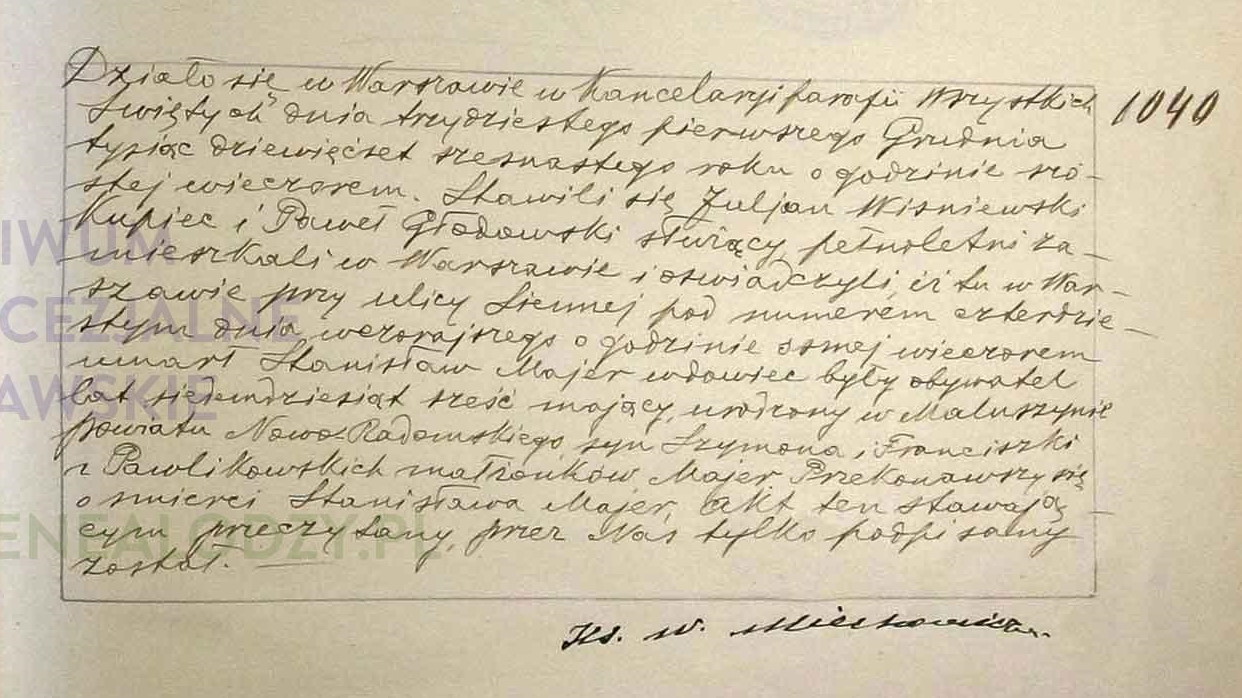 Działo się w Warszawie w Kancelaryi parafii Wszystkich 1040
Świętych dnia trzydziestego pierwszego Grudnia
tysiąc dziewięćset szesnastego roku o godzinie szó-
stej wieczorem. Stawili się Juljan Wiśniewski
Kupiec i Paweł Głodowski służący, pełnoletni za-
mieszkali w Warszawie i oświadczyli, iż tu w War-
szawie przy ulicy Siennej pod numerem czterdzie-
stym dnia wczorajszego o godzinie ósmej wieczorem
umarł Stanisław Majer wdowiec były obywatel
lat siedemdziesiąt sześć mający, urodzony w Maluszynie
powiatu Nowo-Radomskiego, syn Szymona i Franciszki
z Pawlikowskich małżonków Majer. Przekonawszy się
o śmierci Stanisława Majer, akt ten stawają-
cym przeczytany, przez Nas tylko podpisany
został.
Ks. W.
IWUM
CEZJALNE
AWSKIE
ENEALODZY.PL